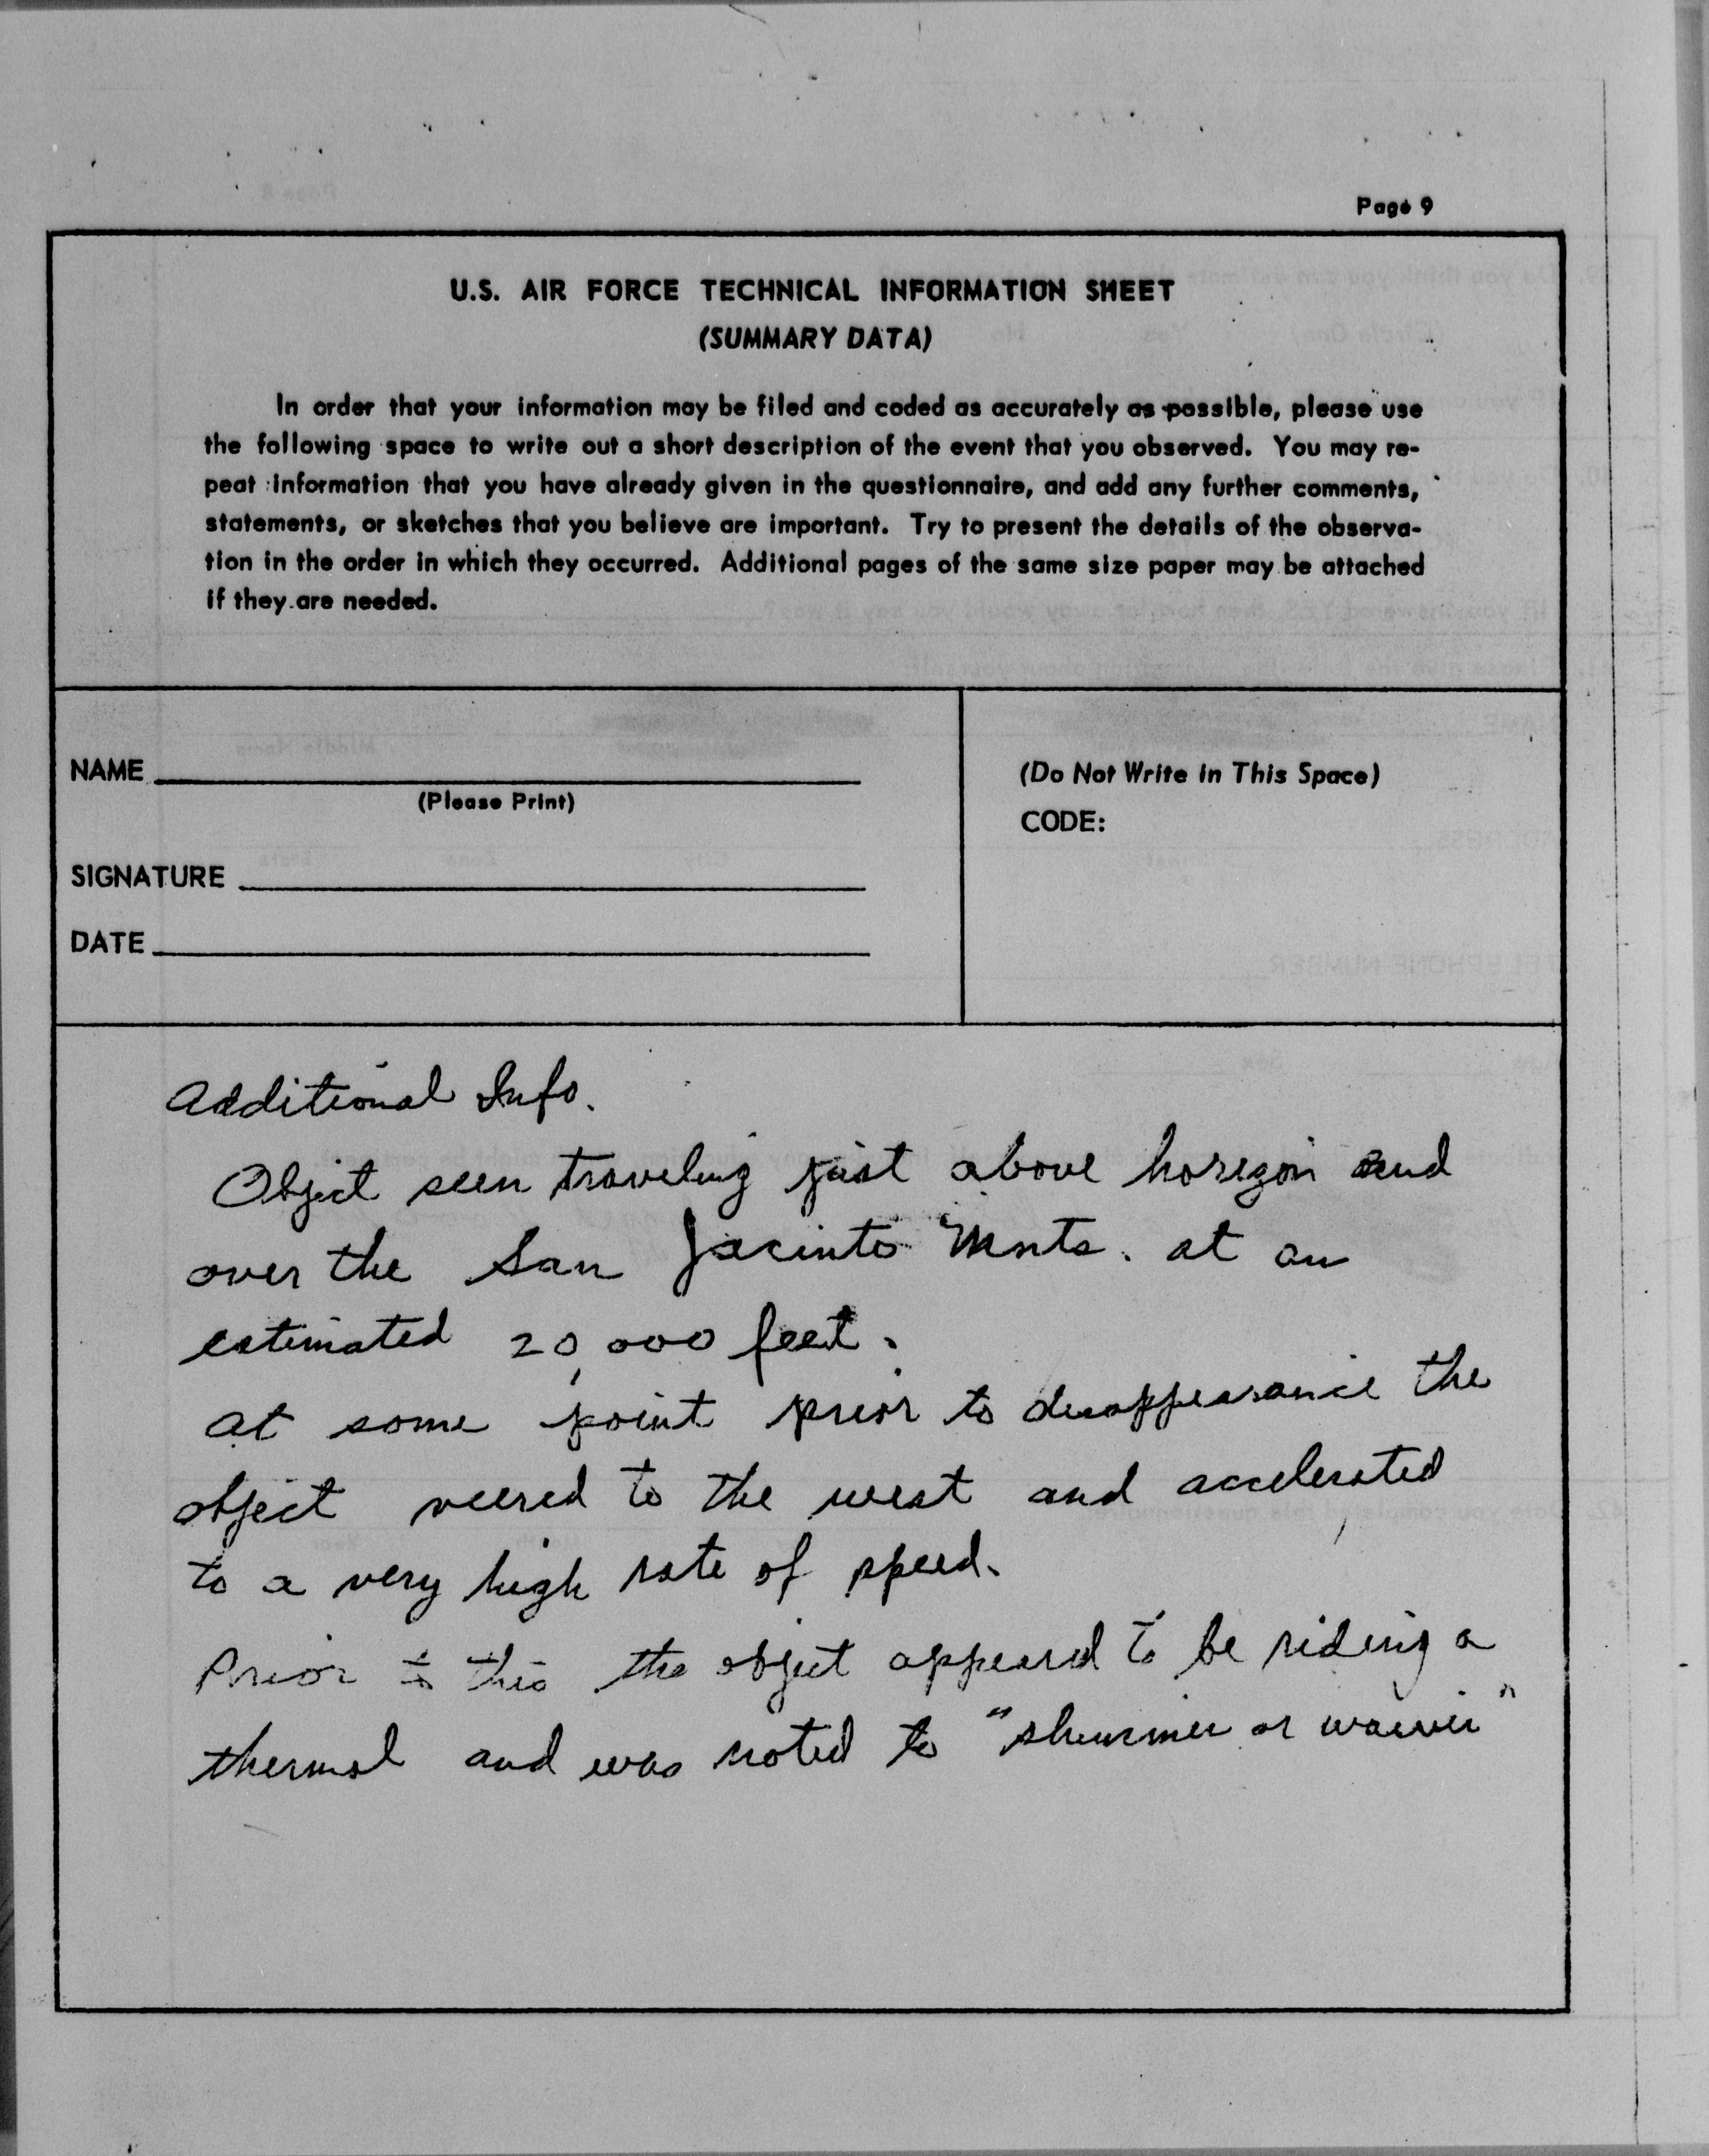 Page 9
U.S. AIR FORCE TECHNICAL INFORMATION SHEET
(SUMMARY DATA)
In order that your information may be filed and coded as accurately as possible, please use
the following space to write out a short description of the event that you observed. You may re-
peat information that you have already given in the questionnaire, and add any further comments,
statements, or sketches that you believe are important. Try to present the details of the observa-
tion in the order in which they occurred. Additional pages of the same size paper may be attached
if they are needed.
NAME
(Please Print)
SIGNATURE
DATE
(Do Not Write in This Space)
CODE:
Additional Info.
Object seen traveling just above horizon and
over the San Jacinto Mnts. at an
estimated 20,000 feet.
at some point prior to disappearance the
object veered to the west and accelerated
to a very high rate of speed.
Prior to this the object appeared to be riding a
thermal and was noted to "shimmer or waiver"